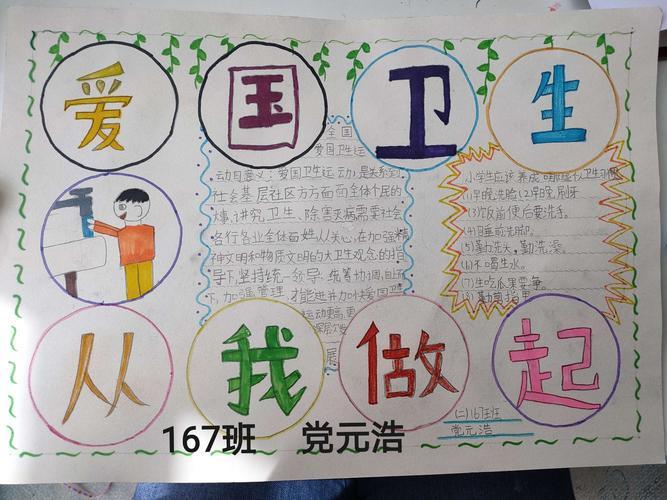 爱国卫生
全国
爱国卫生运
动与意义:爱国卫生运动,是关系到
社会基层社区方方面面全体个民的
事,讲究卫生、除害灭病需要社会
各行各业全体百姓从关心,在加强精
神文明和物质文明的大卫生观念的指
导下,坚持统一领导、统筹协调,
下,加强管理,才能进并加快爱国卫
运动更高更
展
小学生应该养成哪些卫生习惯
(1)早晚洗脸(2)早晚刷牙
(3)饭前便后要洗手。
(4)睡前洗脚。
(5)勤洗头,勤洗澡。
(6)不喝生水。
(7)生吃瓜果要净。
(8)勤剪指甲
从我做起
(二)167班
党元浩
167班 党元浩